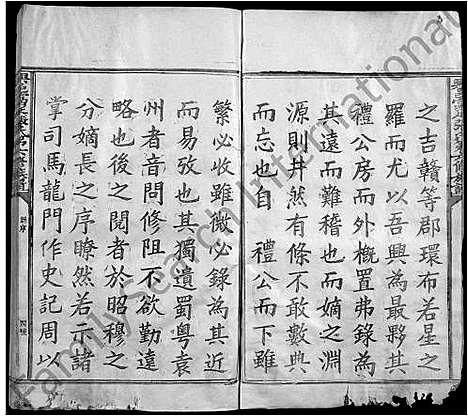 之吉贛等郡環布若星之
羅而尤以吾興為最夥其
禮公房而外概置弗錄為
其遠而難稽也而嫡之淵
源則井然有條不敢數典
而忘也自 禮公而下雖
繁必收雖微必錄為其近
而易攷也其獨遺蜀粵袁
州者音問修阻不欲勤遠
略也後之閱者於昭穆之
分嫡長之序瞭然若示諸
掌司馬龍門作史記周以
FamilySearch International